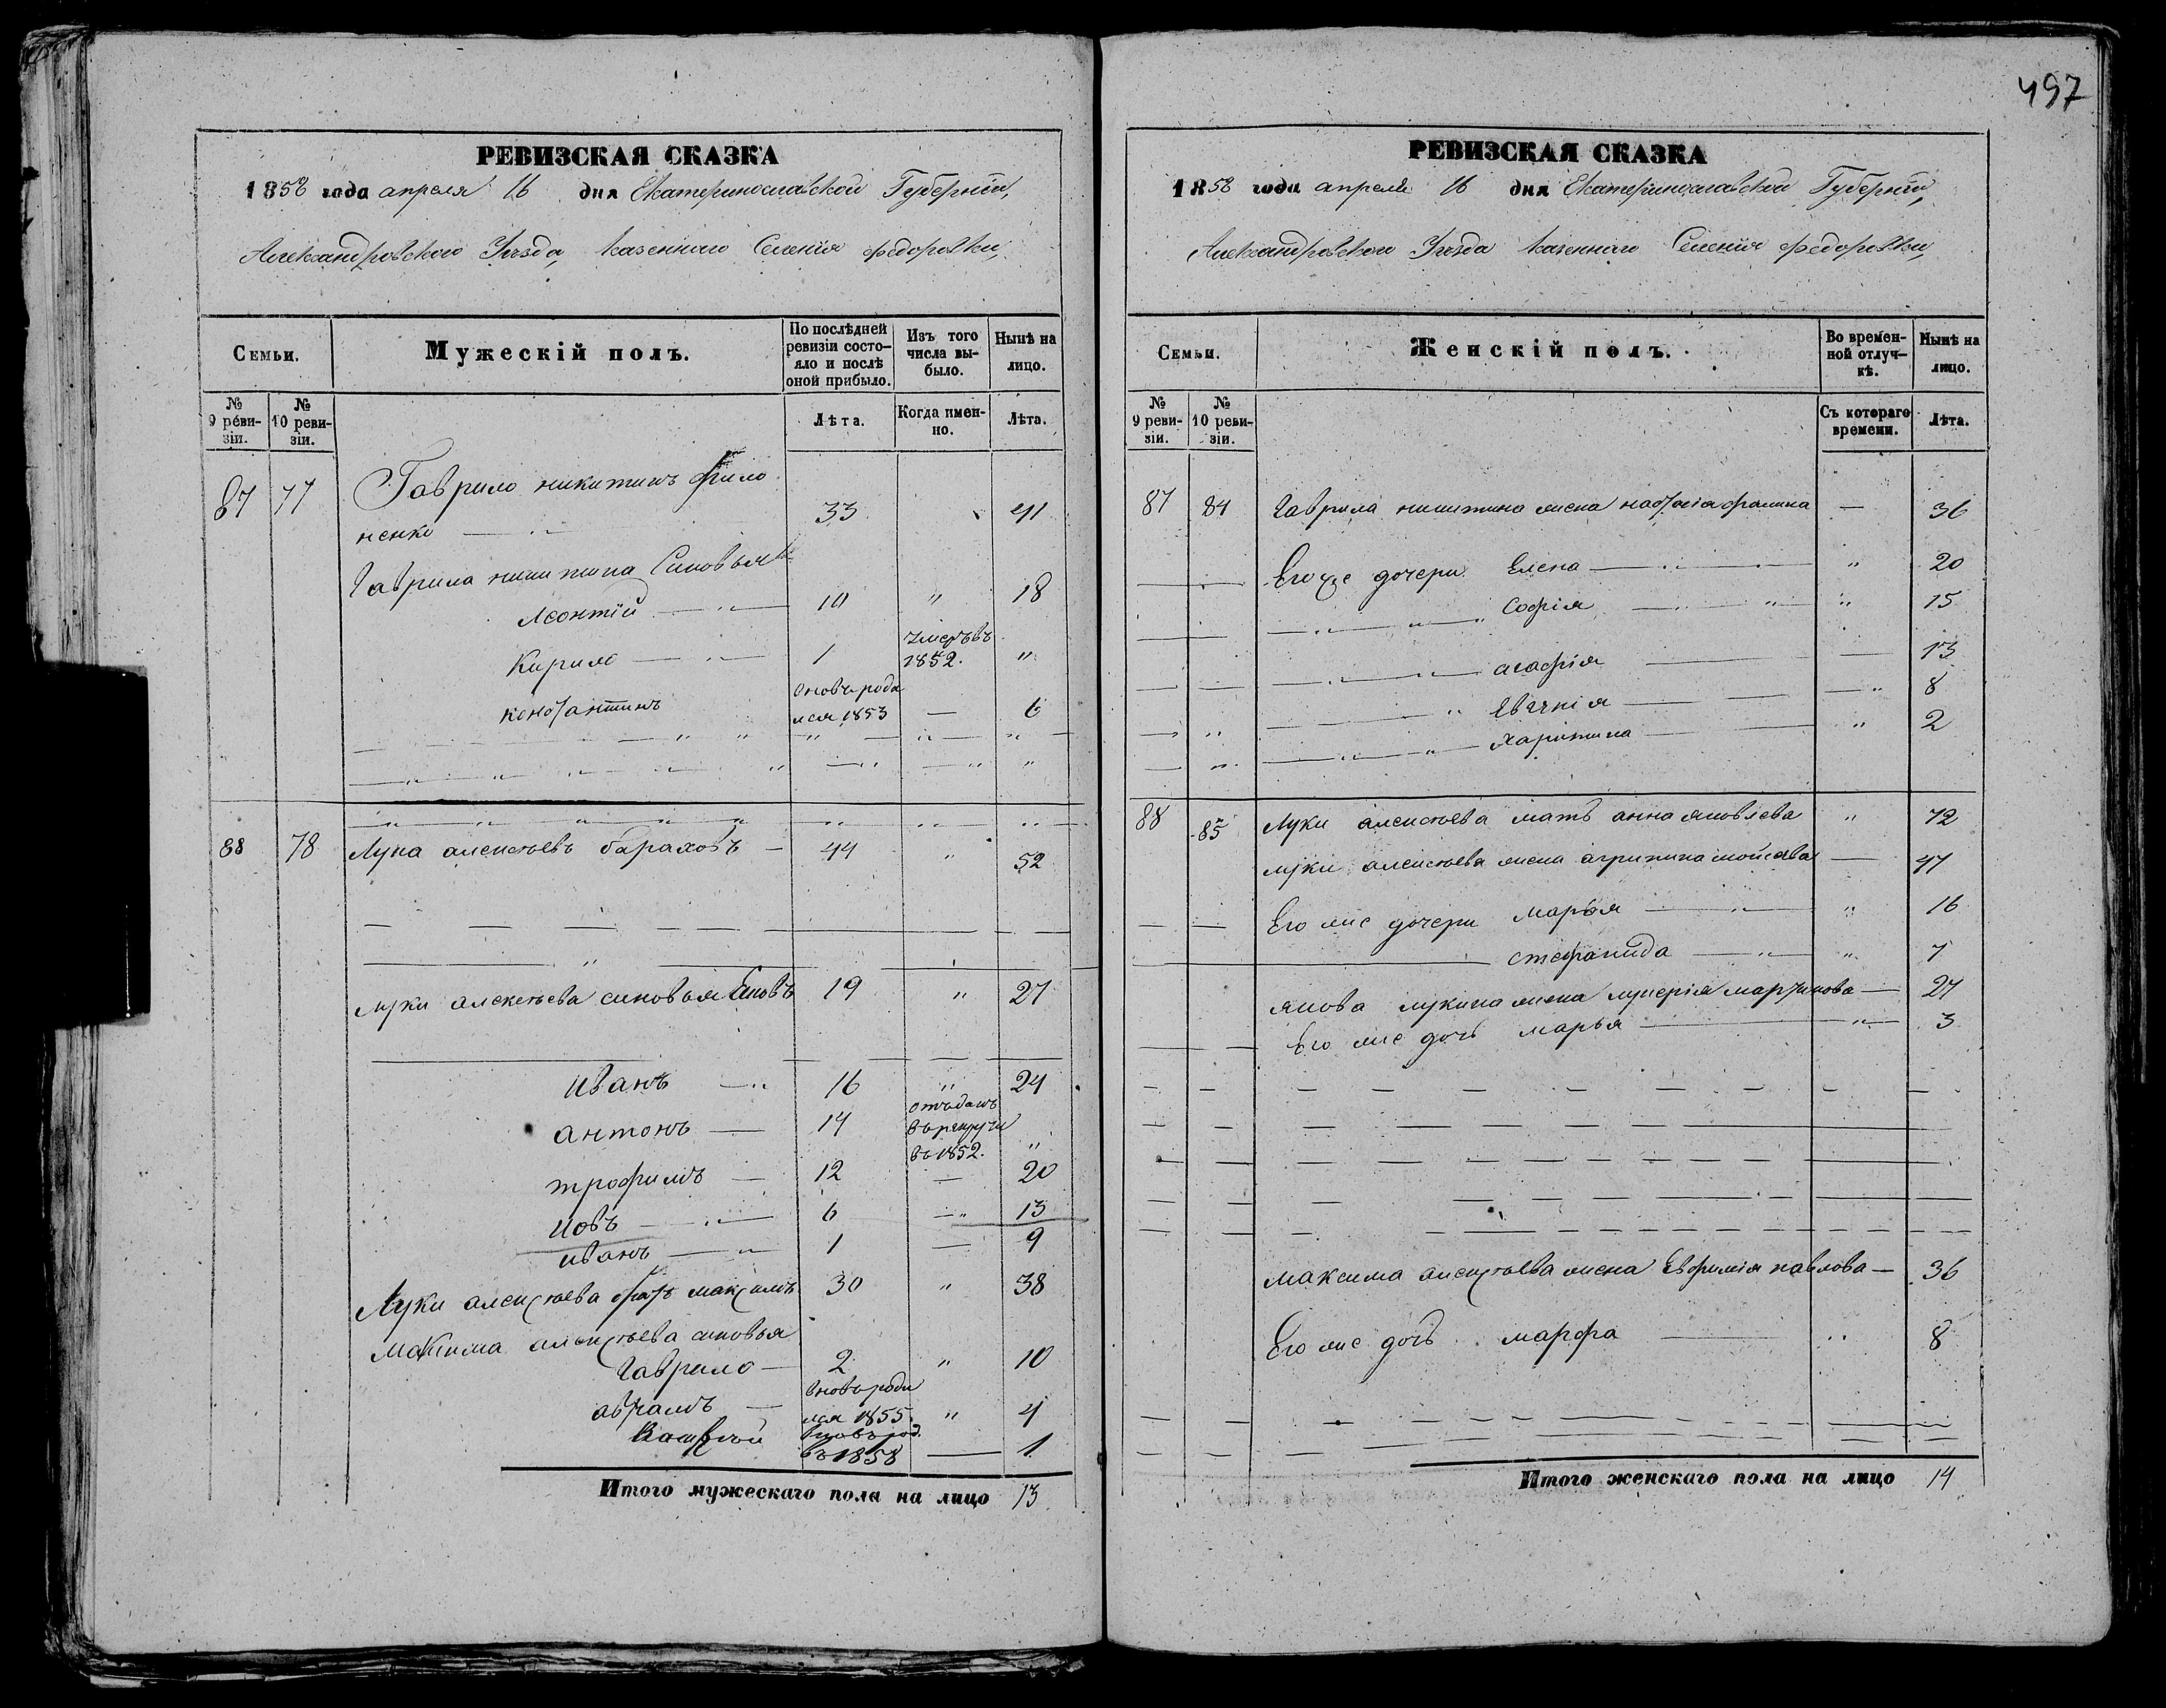 497
РЕВИЗСКАЯ СКАЗКА
1858 года апреля 16 дня Екатеринославской Губерніи,
Александровского Уезда, казенного Селенія федоровки,
Семьи.
Мужескій полъ.
По послѣдней ревизіи состояло и послѣ оной прибыло.
Изъ того числа выбыло.
Нынѣ на лицо.
№ 9 ревизіи.
№ 10 ревизіи.
Лѣта.
Когда именно.
Лѣта.
87 77 Гаврило никитинъ Фило
ненко — 33 41
Гаврила никитина Сыновья
Леонтій — 10 " 18
Кирило — 1 умеръ въ 1852. "
константинъ вновь родился 1853 — 6
88 78 Лука алексѣевъ бараховъ — 44 " 52
луки алексѣева сыновья Яковъ 19 " 27
иванъ — 16 " 24
антонъ — 14 отъданъ въ рекруты въ 1852. "
трофимъ — 12 — 20
иовъ — 6 — 13
иванъ — 1 — 9
Луки алексѣева братъ максимъ 30 " 38
Максима алексѣева сыновья
Гаврило — 2 " 10
авраамъ — вновь родился 1855. " 4
Василій вновь род. въ 1858 — 1
Итого мужескаго пола на лицо 13
РЕВИЗСКАЯ СКАЗКА
1858 года апреля 16 дня Екатеринославской Губерніи,
Александровского Уезда казенного Селенія федоровки,
Семьи.
Женскій полъ.
Во временной отлучкѣ.
Нынѣ на лицо.
№ 9 ревизіи.
№ 10 ревизіи.
Съ котораго времени.
Лѣта.
87 84 Гаврила никитина жена настасія фомина — 36
Его же дочери Елена — " 20
Софія — " 15
агафія — 13
Евгенія — " 8
Харитина — " 2
88 85 Луки алексѣева мать анна яковлева " 72
луки алексѣева жена агрипина моисѣева — 47
Его же дочери марья — " 16
стефанида — " 7
якова лукина жена лукерія мартинова — 27
Его же дочь марья — " 3
максима алексѣева жена Евфимія павлова — 36
Его же дочь марфа — " 8
Итого женскаго пола на лицо 14